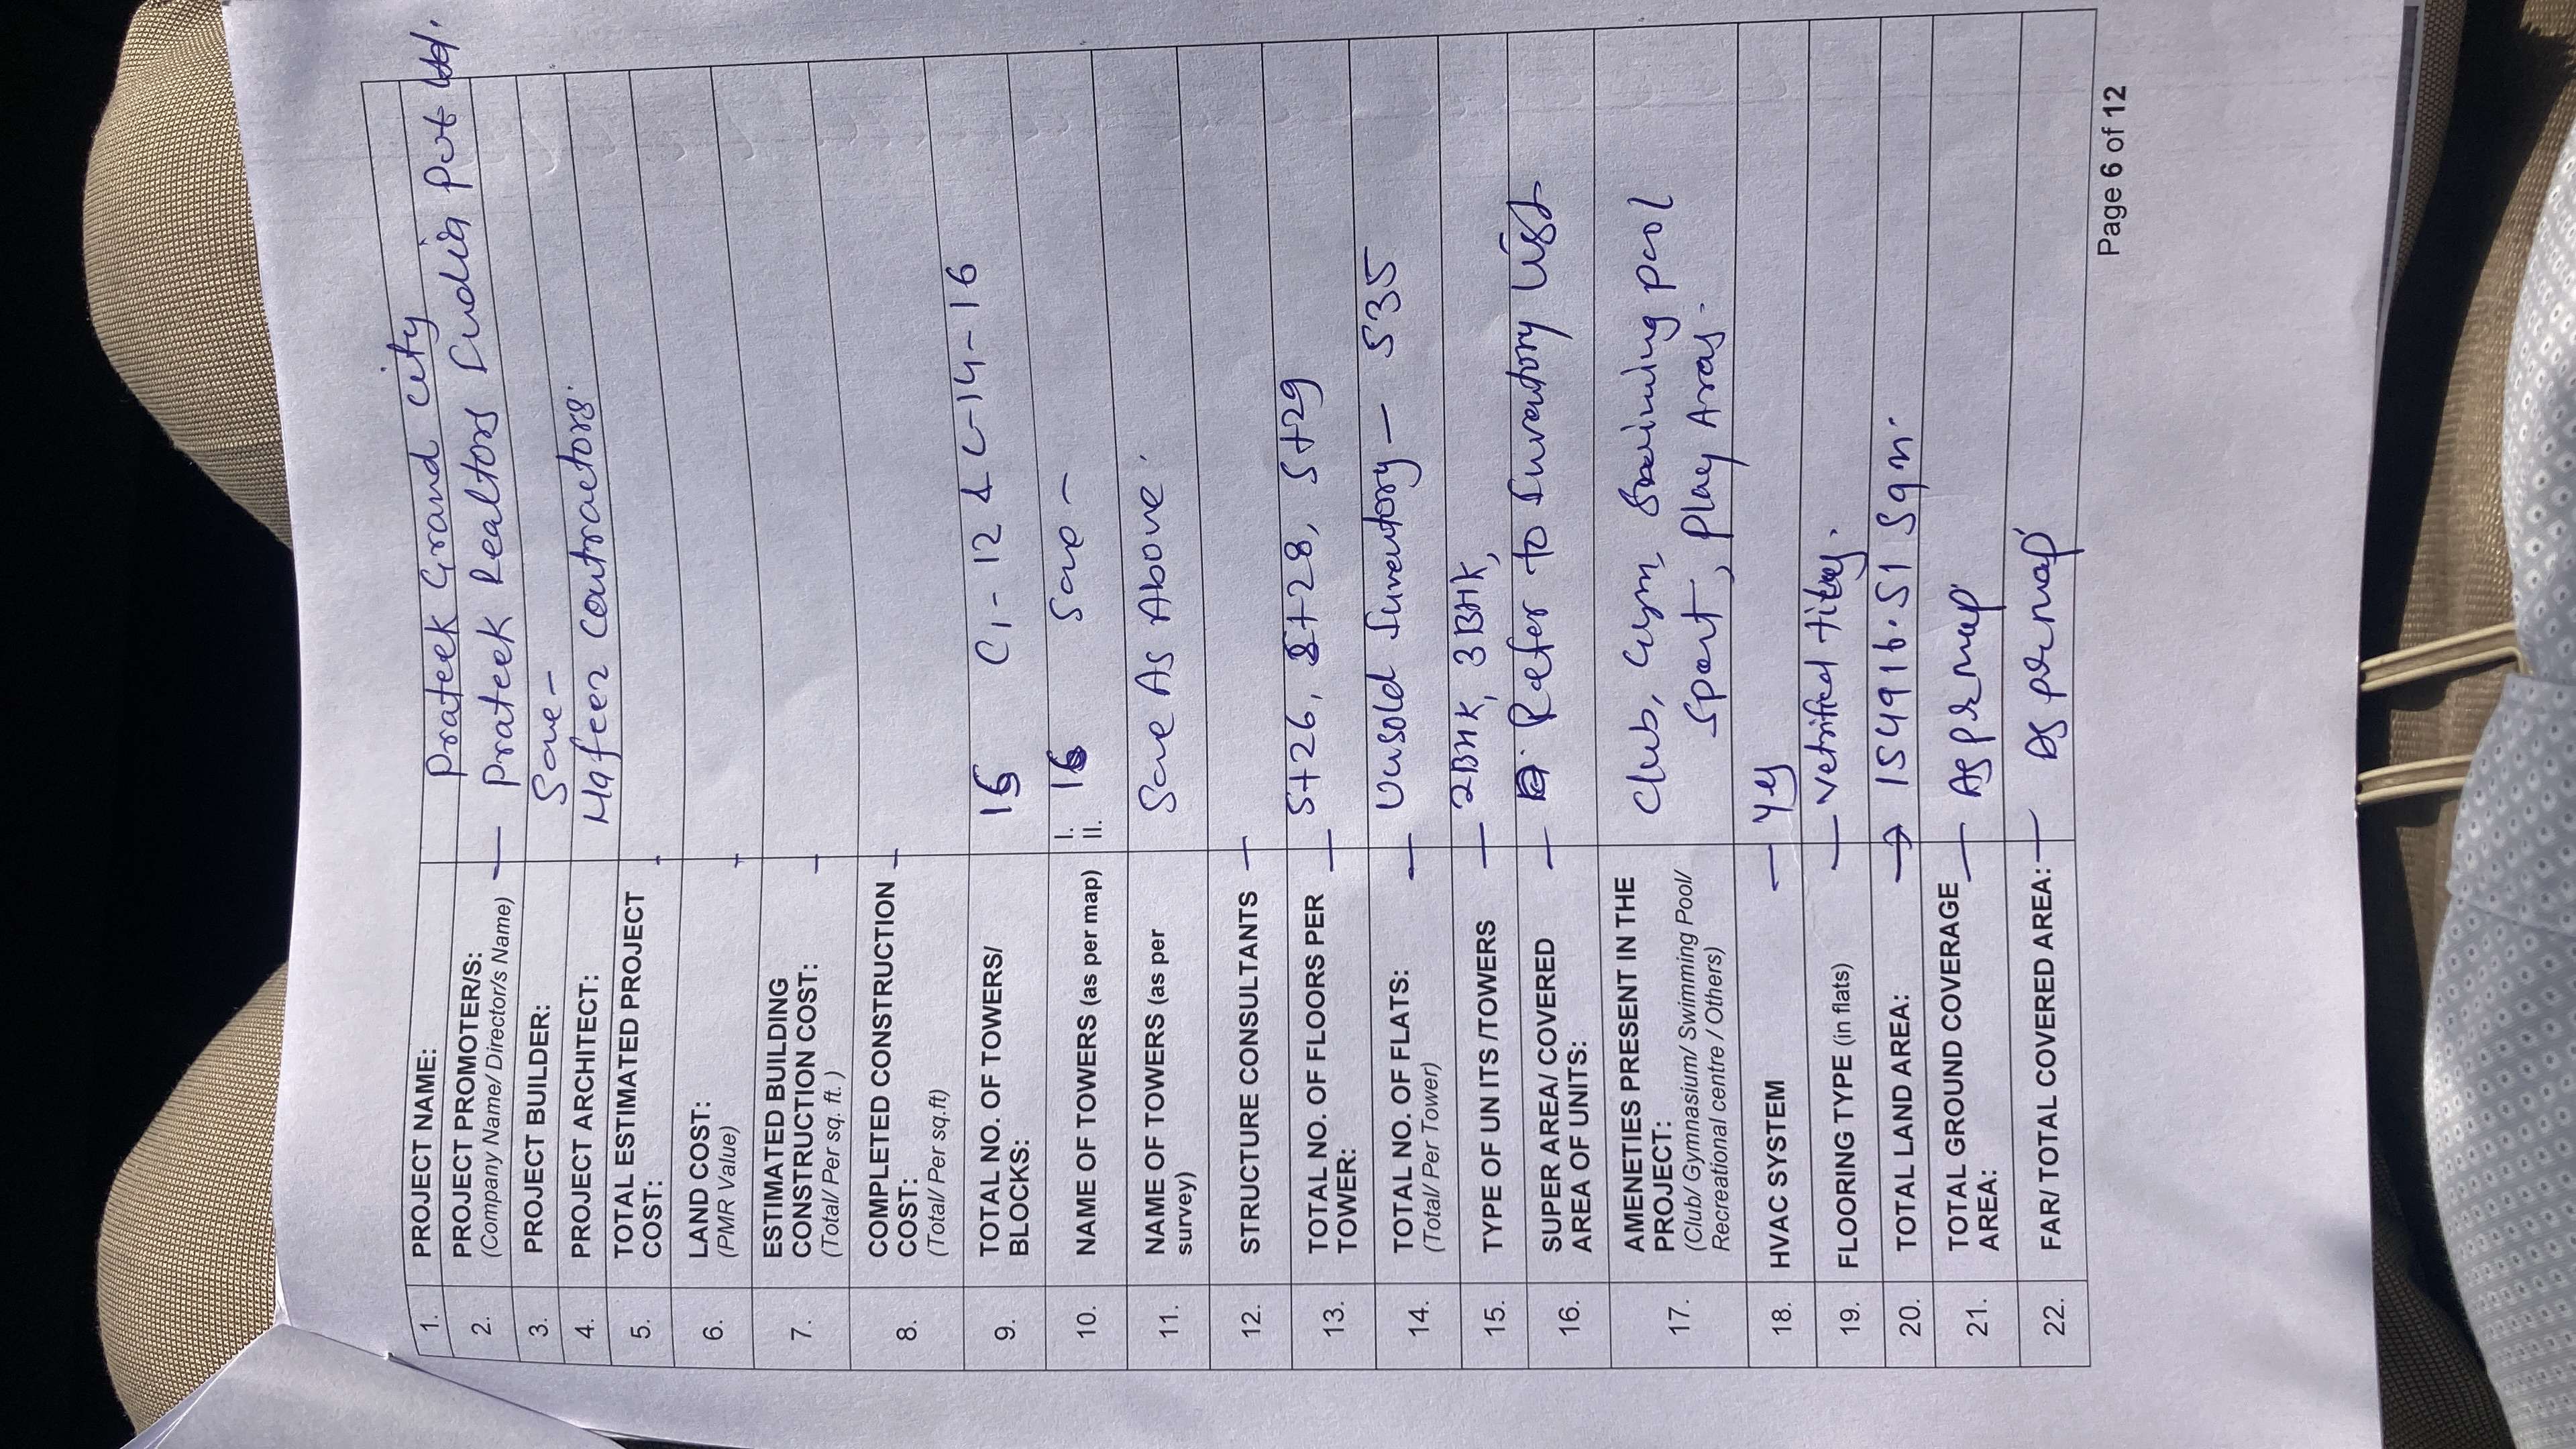 1. PROJECT NAME: Prateek Grand City
2. PROJECT PROMOTER/S: — Prateek Realtors India Pvt Ltd.
(Company Name/ Director/s Name)
3. PROJECT BUILDER: Same -
4. PROJECT ARCHITECT: Hafeez Contractors.
5. TOTAL ESTIMATED PROJECT
COST:
6. LAND COST:
(PMR Value)
7. ESTIMATED BUILDING
CONSTRUCTION COST:
(Total/ Per sq. ft. )
8. COMPLETED CONSTRUCTION
COST:
(Total/ Per sq.ft)
9. TOTAL NO. OF TOWERS/
BLOCKS:
C1 - 12 & C-14 - 16
10. NAME OF TOWERS (as per map) I. 16 Same -
II.
11. NAME OF TOWERS (as per
survey)
Same As Above.
12. STRUCTURE CONSULTANTS —
13. TOTAL NO. OF FLOORS PER
TOWER:
— S+26, S+28, S+29
14. TOTAL NO. OF FLATS: — Unsold Inventory — 535
(Total/ Per Tower)
15. TYPE OF UN ITS /TOWERS — 2BHK, 3BHK,
16. SUPER AREA/ COVERED
AREA OF UNITS:
— Refer to Inventory List
17. AMENETIES PRESENT IN THE
PROJECT:
(Club/ Gymnasium/ Swimming Pool/
Recreational centre / Others)
Club, Gym, Swimming pool
Sport, Play Areas.
18. HVAC SYSTEM — Yes
19. FLOORING TYPE (in flats) — Vetrified tiles.
20. TOTAL LAND AREA: → 154916.51 Sqm.
21. TOTAL GROUND COVERAGE
AREA:
— As per map
22. FAR/ TOTAL COVERED AREA: — As per map
Page 6 of 12